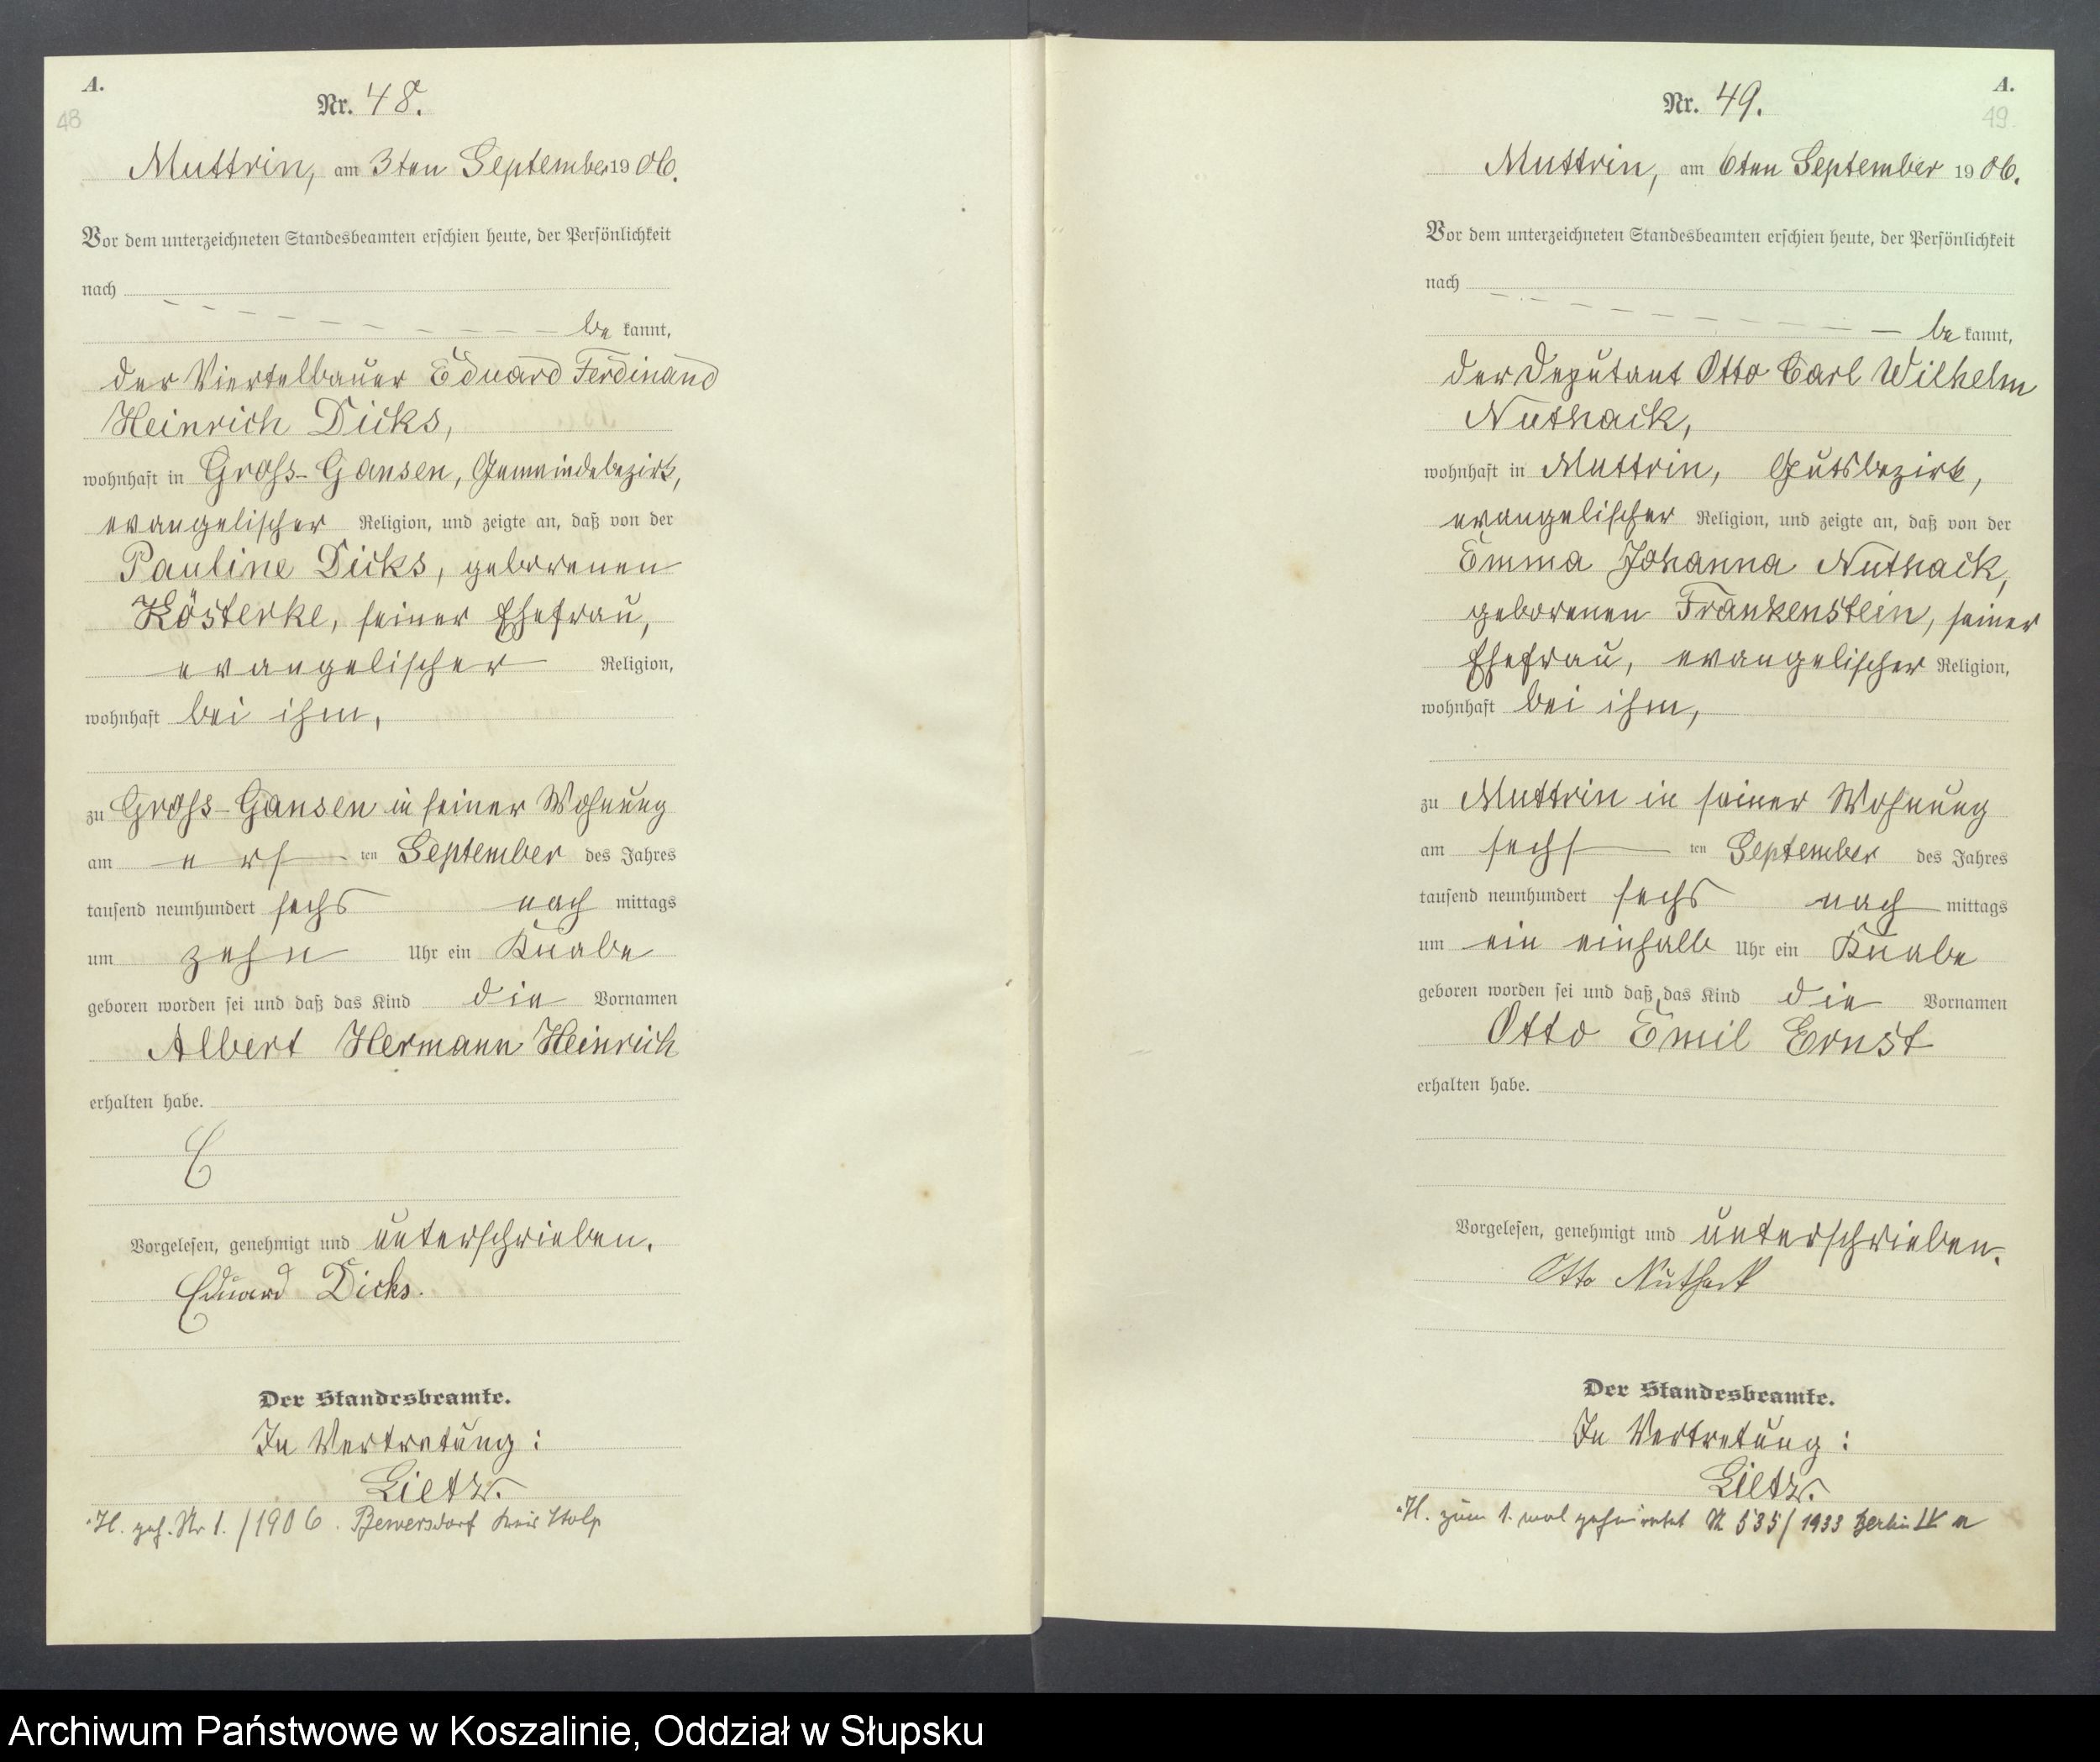 A.
48
Nr. 48.
Muttrin, am 3ten September 1906.
Vor dem unterzeichneten Standesbeamten erschien heute, der Persönlichkeit
nach
be kannt,
der Viertelbauer Eduard Ferdinand
Heinrich Dicks,
wohnhaft in Groß-Gansen, Gemeindebezirk,
evangelischer Religion, und zeigte an, daß von der
Pauline Dicks, geborenen
Kösterke, seiner Ehefrau,
evangelischer Religion,
wohnhaft bei ihm,
zu Groß-Gansen in seiner Wohnung
am ers ten September des Jahres
tausend neunhundert sechs nach mittags
um zehn Uhr ein Knabe
geboren worden sei und daß das Kind die Vornamen
Albert Hermann Heinrich
erhalten habe.
Vorgelesen, genehmigt und unterschrieben.
Eduard Dicks.
Der Standesbeamte.
In Vertretung:
Lietz.
H. geh. Nr 1./1906. Bewersdorf Kreis Stolp
A.
49
Nr. 49.
Muttrin, am 6ten September 1906.
Vor dem unterzeichneten Standesbeamten erschien heute, der Persönlichkeit
nach
be kannt,
der Deputant Otto Carl Wilhelm
Nuthack,
wohnhaft in Muttrin, Gutsbezirk,
evangelischer Religion, und zeigte an, daß von der
Emma Johanna Nuthack,
geborenen Frankenstein, seiner
Ehefrau, evangelischer Religion,
wohnhaft bei ihm,
zu Muttrin in seiner Wohnung
am sechs ten September des Jahres
tausend neunhundert sechs nach mittags
um ein einhalb Uhr ein Knabe
geboren worden sei und daß das Kind die Vornamen
Otto Emil Ernst
erhalten habe.
Vorgelesen, genehmigt und unterschrieben.
Otto Nuthack
Der Standesbeamte.
In Vertretung:
Lietz.
H. zum 1. mal geheiratet Nr 535/1933 Berlin IV a
Archiwum Państwowe w Koszalinie, Oddział w Słupsku